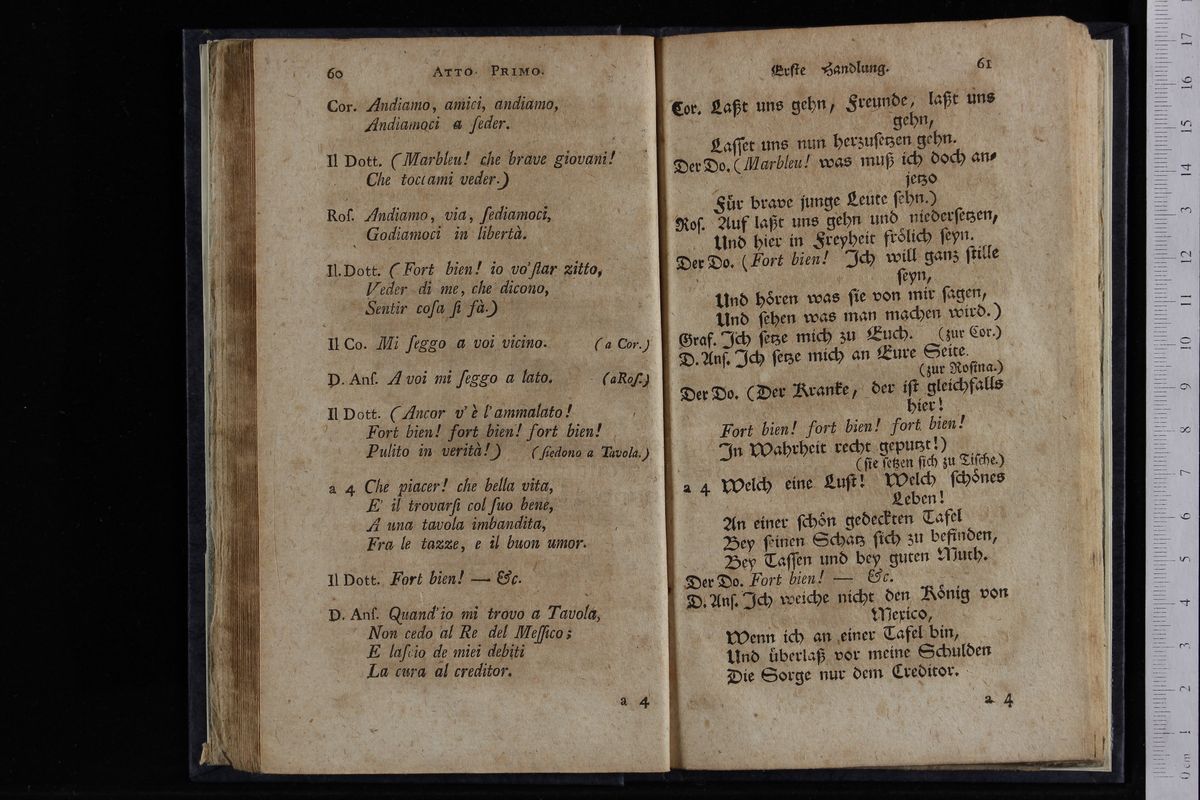 60 ATTO PRIMO.
Cor. Andiamo, amici, andiamo,
Andiamoci a ſeder.
Il Dott. (Marbleu! che brave giovani!
Che toccami veder.)
Roſ. Andiamo, via, ſediamoci,
Godiamoci in libertà.
Il.Dott. (Fort bien! io vo'ſtar zitto,
Veder di me, che dicono,
Sentir coſa ſi fà.)
Il Co. Mi ſeggo a voi vicino. (a Cor.)
D. Anſ. A voi mi ſeggo a lato. (aRoſ.)
Il Dott. (Ancor v'è l'ammalato!
Fort bien! fort bien! fort bien!
Pulito in verità!) (ſiedono a Tavola.)
a 4 Che piacer! che bella vita,
E' il trovarſi col ſuo bene,
A una tavola imbandita,
Fra le tazze, e il buon umor.
Il Dott. Fort bien! — &c.
D. Anſ. Quand'io mi trovo a Tavola,
Non cedo al Re del Meſſico;
E laſcio de miei debiti
La cura al creditor.
a 4
Erſte Handlung. 61
Cor. Laßt uns gehn, Freunde, laßt uns
gehn,
Laſſet uns nun herzuſetzen gehn.
Der Do. (Marbleu! was muß ich doch an⸗
jetzo
Für brave junge Leute ſehn.)
Roſ. Auf laßt uns gehn und niederſetzen,
Und hier in Freyheit frölich ſeyn.
Der Do. (Fort bien! Ich will ganz ſtille
ſeyn,
Und hören was ſie von mir ſagen,
Und ſehen was man machen wird.)
Graf. Ich ſetze mich zu Euch. (zur Cor.)
D. Anſ. Ich ſetze mich an Eure Seite.
(zur Roſina.)
Der Do. (Der Kranke, der iſt gleichfalls
hier!
Fort bien! fort bien! fort bien!
In Wahrheit recht geputzt!)
(ſie ſetzen ſich zu Tiſche.)
a 4 Welch eine Luſt! Welch ſchönes
Leben!
An einer ſchön gedeckten Tafel
Bey ſeinen Schatz ſich zu befinden,
Bey Taſſen und bey guten Muth.
Der Do. Fort bien! — &c.
D. Anſ. Ich weiche nicht den König von
Mexico,
Wenn ich an einer Tafel bin,
Und überlaß vor meine Schulden
Die Sorge nur dem Creditor.
a 4
17
16
15
14
13
12
11
10
9
8
7
6
5
4
3
2
1
0 cm